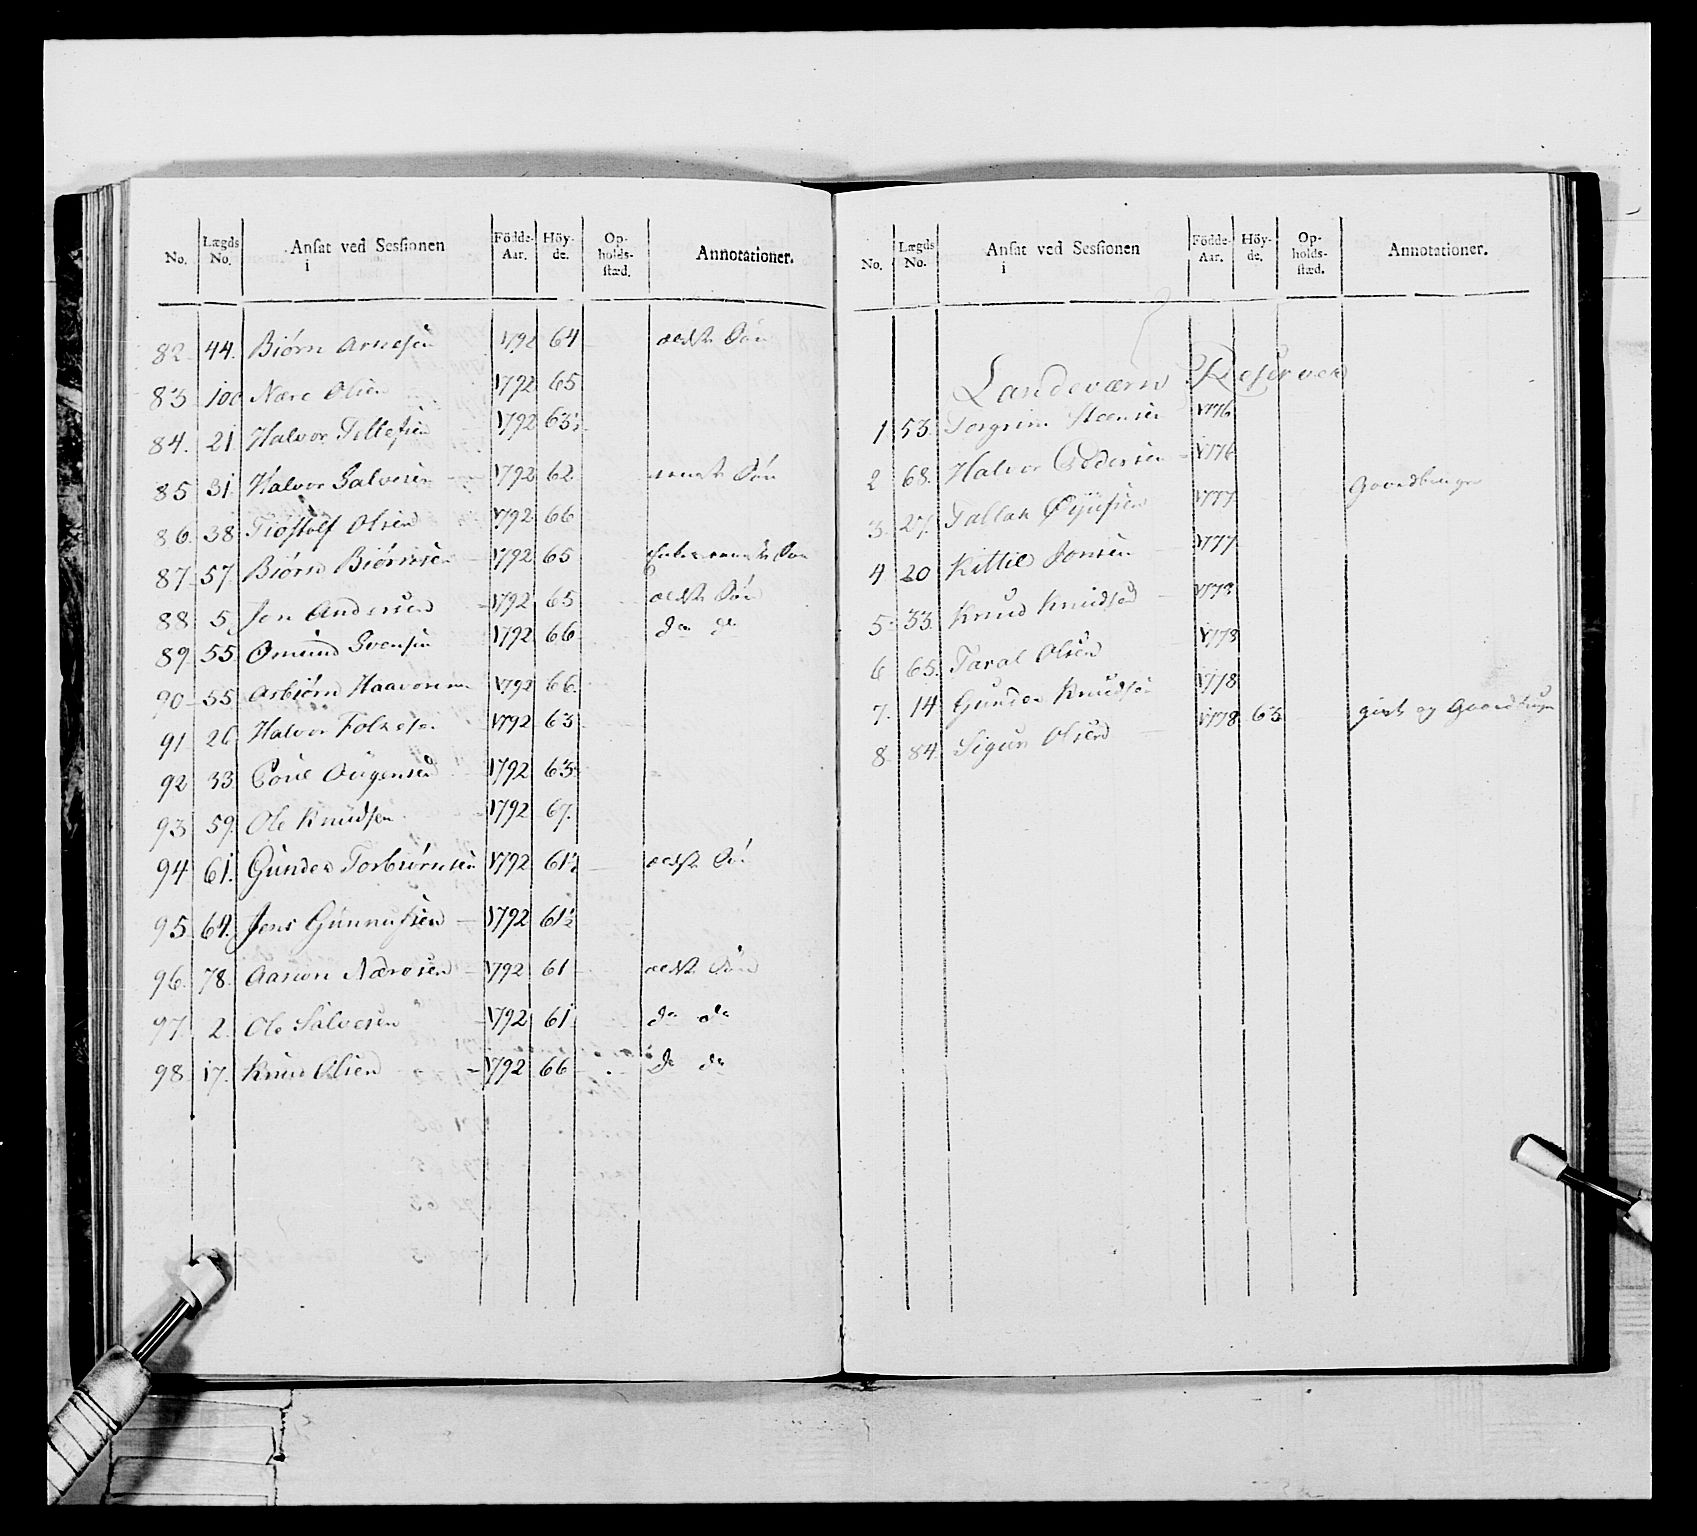 No. Lægds No. Ansat ved Sessionen i Födde-Aar. Höy-de. Op-holds-stæd. Annotationer.
82 44. Biørn Arnesen 1792 64 ældste Søn
83 100 Nære Olsen 1792 65
84. 21 Halvor Tellefsen 1792 63½
85 31 Halvor Salvesen 1792 62 Søn
86. 38 Tiostolf Olsen 1792 66
87 57. Biørn Biørnsen 1792 65 Søn
88 5. Jon Andersen 1792 65 ældste Søn
89 55 Omund Svensen 1792 66 do do
90 55 Asbiørn Haavorsen 1792 66.
91 26 Halvor Folkesen 1792 63
92 33 Poul Augensen 1792 63½
93 59. Ole Knudsen 1792 67.
94 61. Gunder Torbiørnsen 1792 61½ ældste Søn
95. 69. Jens Gunnufsen 1792 61½
96. 78. Aanon Næresen 1792 61 ældste Søn
97. 2. Ole Salvesen 1792 61 do do
98 17. Knud Olsen 1792 66 do do
No. Lægds No. Ansat ved Sessionen i Födde-Aar. Höy-de. Op-holds-stæd. Annotationer.
Landeværns Reserven
1 53. Torgrim Steensen 1776
2 68. Halvor Pedersen 1776
3. 27. Tallak Øyufsen 1777 Gaardbruger
4 20 Kittil Jonsen 1777
5. 33. Knud Knudsen 1778
6 65. Taral Olsen 1778
7. 14 Gunder Knudsen 1778
8 84. Sigur Olsen 1778 63 givt og Gaardbruger